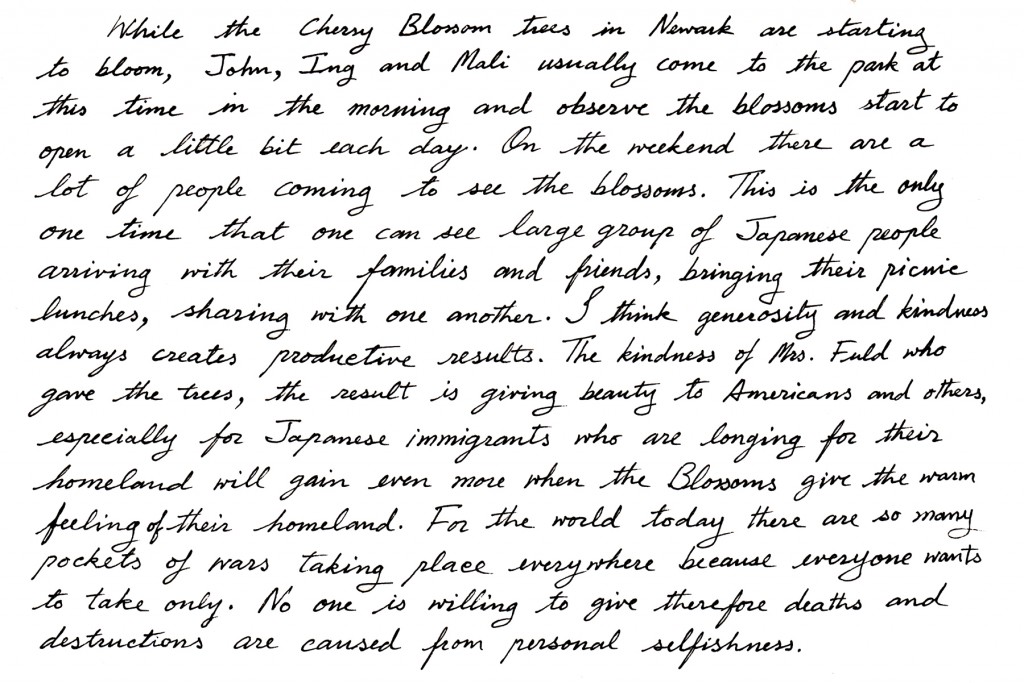 While the Cherry Blossom trees in Newark are starting
to bloom, John, Ing and Mali usually come to the park at
this time in the morning and observe the blossoms start to
open a little bit each day. On the weekend there are a
lot of people coming to see the blossoms. This is the only
one time that one can see large group of Japanese people
arriving with their families and friends, bringing their picnic
lunches, sharing with one another. I think generosity and kindness
always creates productive results. The kindness of Mrs. Fuld who
gave the trees, the result is giving beauty to Americans and others,
especially for Japanese immigrants who are longing for their
homeland will gain even more when the Blossoms give the warm
feeling of their homeland. For the world today there are so many
pockets of wars taking place everywhere because everyone wants
to take only. No one is willing to give therefore deaths and
destructions are caused from personal selfishness.